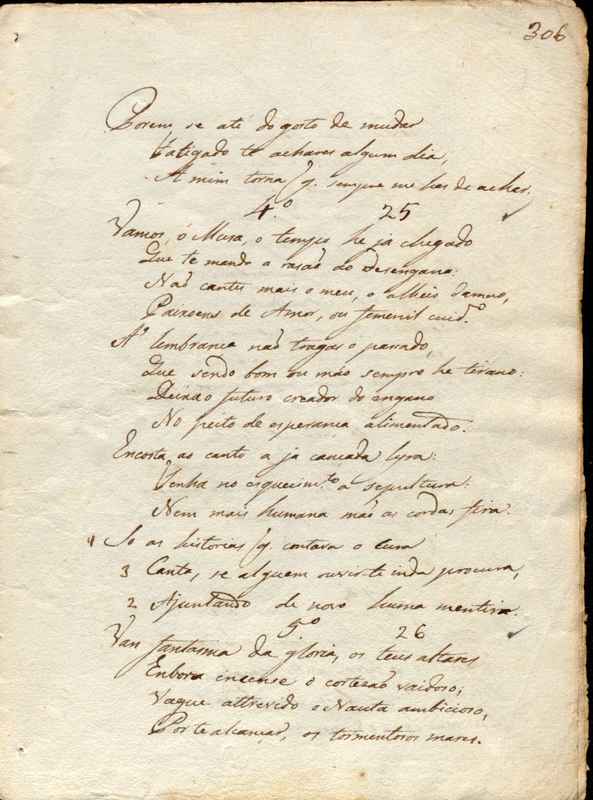 306
Porem se até do gosto de mudar
Fatigado te achares algum dia,
A mim torna q. sempre me has de achar.
4.º 25
Vamos, ó Musa, o tempo he ja chegado
Que te manda a rasaõ do Desengano:
Naõ cantes mais o meu, o alheio damno,
Paixoens de Amor, ou femenil cuid.º
A' lembrança naõ tragas o passado,
Que sendo bom ou máo sempre he tirano:
Deixa o futuro creador do engano
No peito de esperança alimentado.
Encosta ao canto a ja cansada lyra:
Tenha no esquecim.to a sepultura:
Nem mais humana maõ as cordas fira.
1 So as historias q. contava o cura
3 Canta, se alguem ouvir-te inda procura,
2 Ajuntando de novo huma mentira.
5.º 26
Van fantasma da gloria, os teus altares
Enbora incense o cortezaõ vaidoso;
Vague attrevido o Nauta ambicioso,
Por te alcançar, os tormentosos mares.